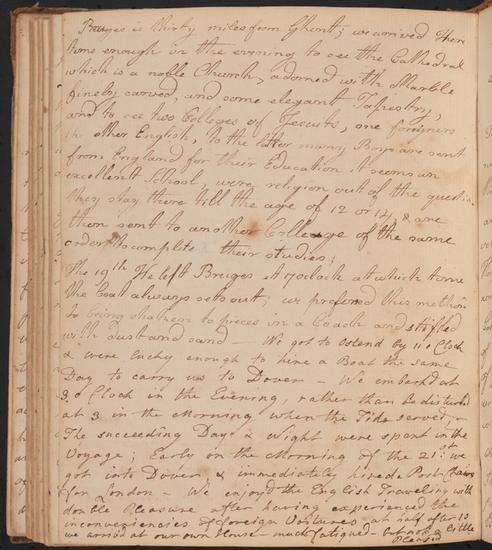 Bruges is thirty miles from Ghent; we arrived there
time enough in the evening to see the Cathedral
which is a noble Church, adorned with Marble
finely carved, and some elegant Tapestry,
and to see two Colleges of Jesuits, one foreigners
the other English, to the latter many Boys are sent
from England for their Education it seems an
excellent School were religion out of the question
they stay there till the age of 12 or 14, & are
then sent to another College of the same
order to complete their studies;
The 19th We left Bruges at 7 oclock at which time
the boat always sets out; we prefered this method
to being shaken to pieces in a Coach and stifled
with dust and sand — We got to Ostend by 11 o Clock
& were lucky enough to hire a Boat the same
Day to carry us to Dover — We embarkd at
3 o Clock in the Evening, rather than be disturbd
at 3 in the Morning when the Tide served, —
The succeeding Day & Night were spent in the
Voyage; Early on the Morning of the 21st we
got into Dover & immediately hired a Post Chaise
for London — We enjoyd the English Traveling with
double Pleasure after having experienced the
inconveniencies of foreign Voitures at half after 10
we arrived at our own House — much fatigued — but not a little
Pleased